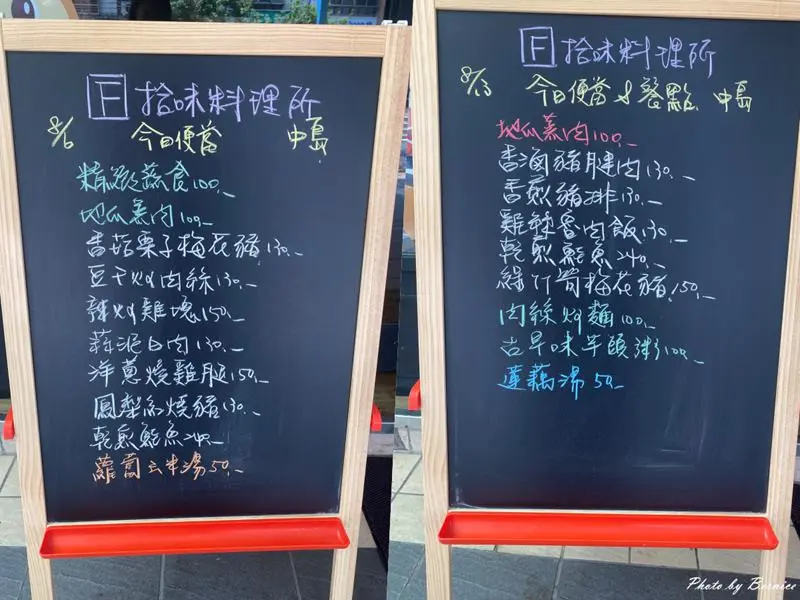 F 拾味料理所
8/6 今日便當 中島
精緻蔬食100.-
地瓜蒸肉100.-
香菇栗子梅花豬130.-
豆干炒肉絲130.-
辣炒雞塊150.-
蒜泥白肉130.-
洋蔥燒雞腿150.-
鳳梨紅燒豬130.-
乾煎鮭魚240.-
蘿蔔玉米湯50.-
F 拾味料理所
8/13 今日便當&餐點 中島
地瓜蒸肉100.-
香滷豬腱肉130.-
香煎豬排130.-
雞辣魯肉飯130.-
乾煎鮭魚240.-
綠竹筍梅花豬150.-
肉絲炒麵100.-
古早味芋頭粥100.-
蓮藕湯50.-
Photo by Bernice